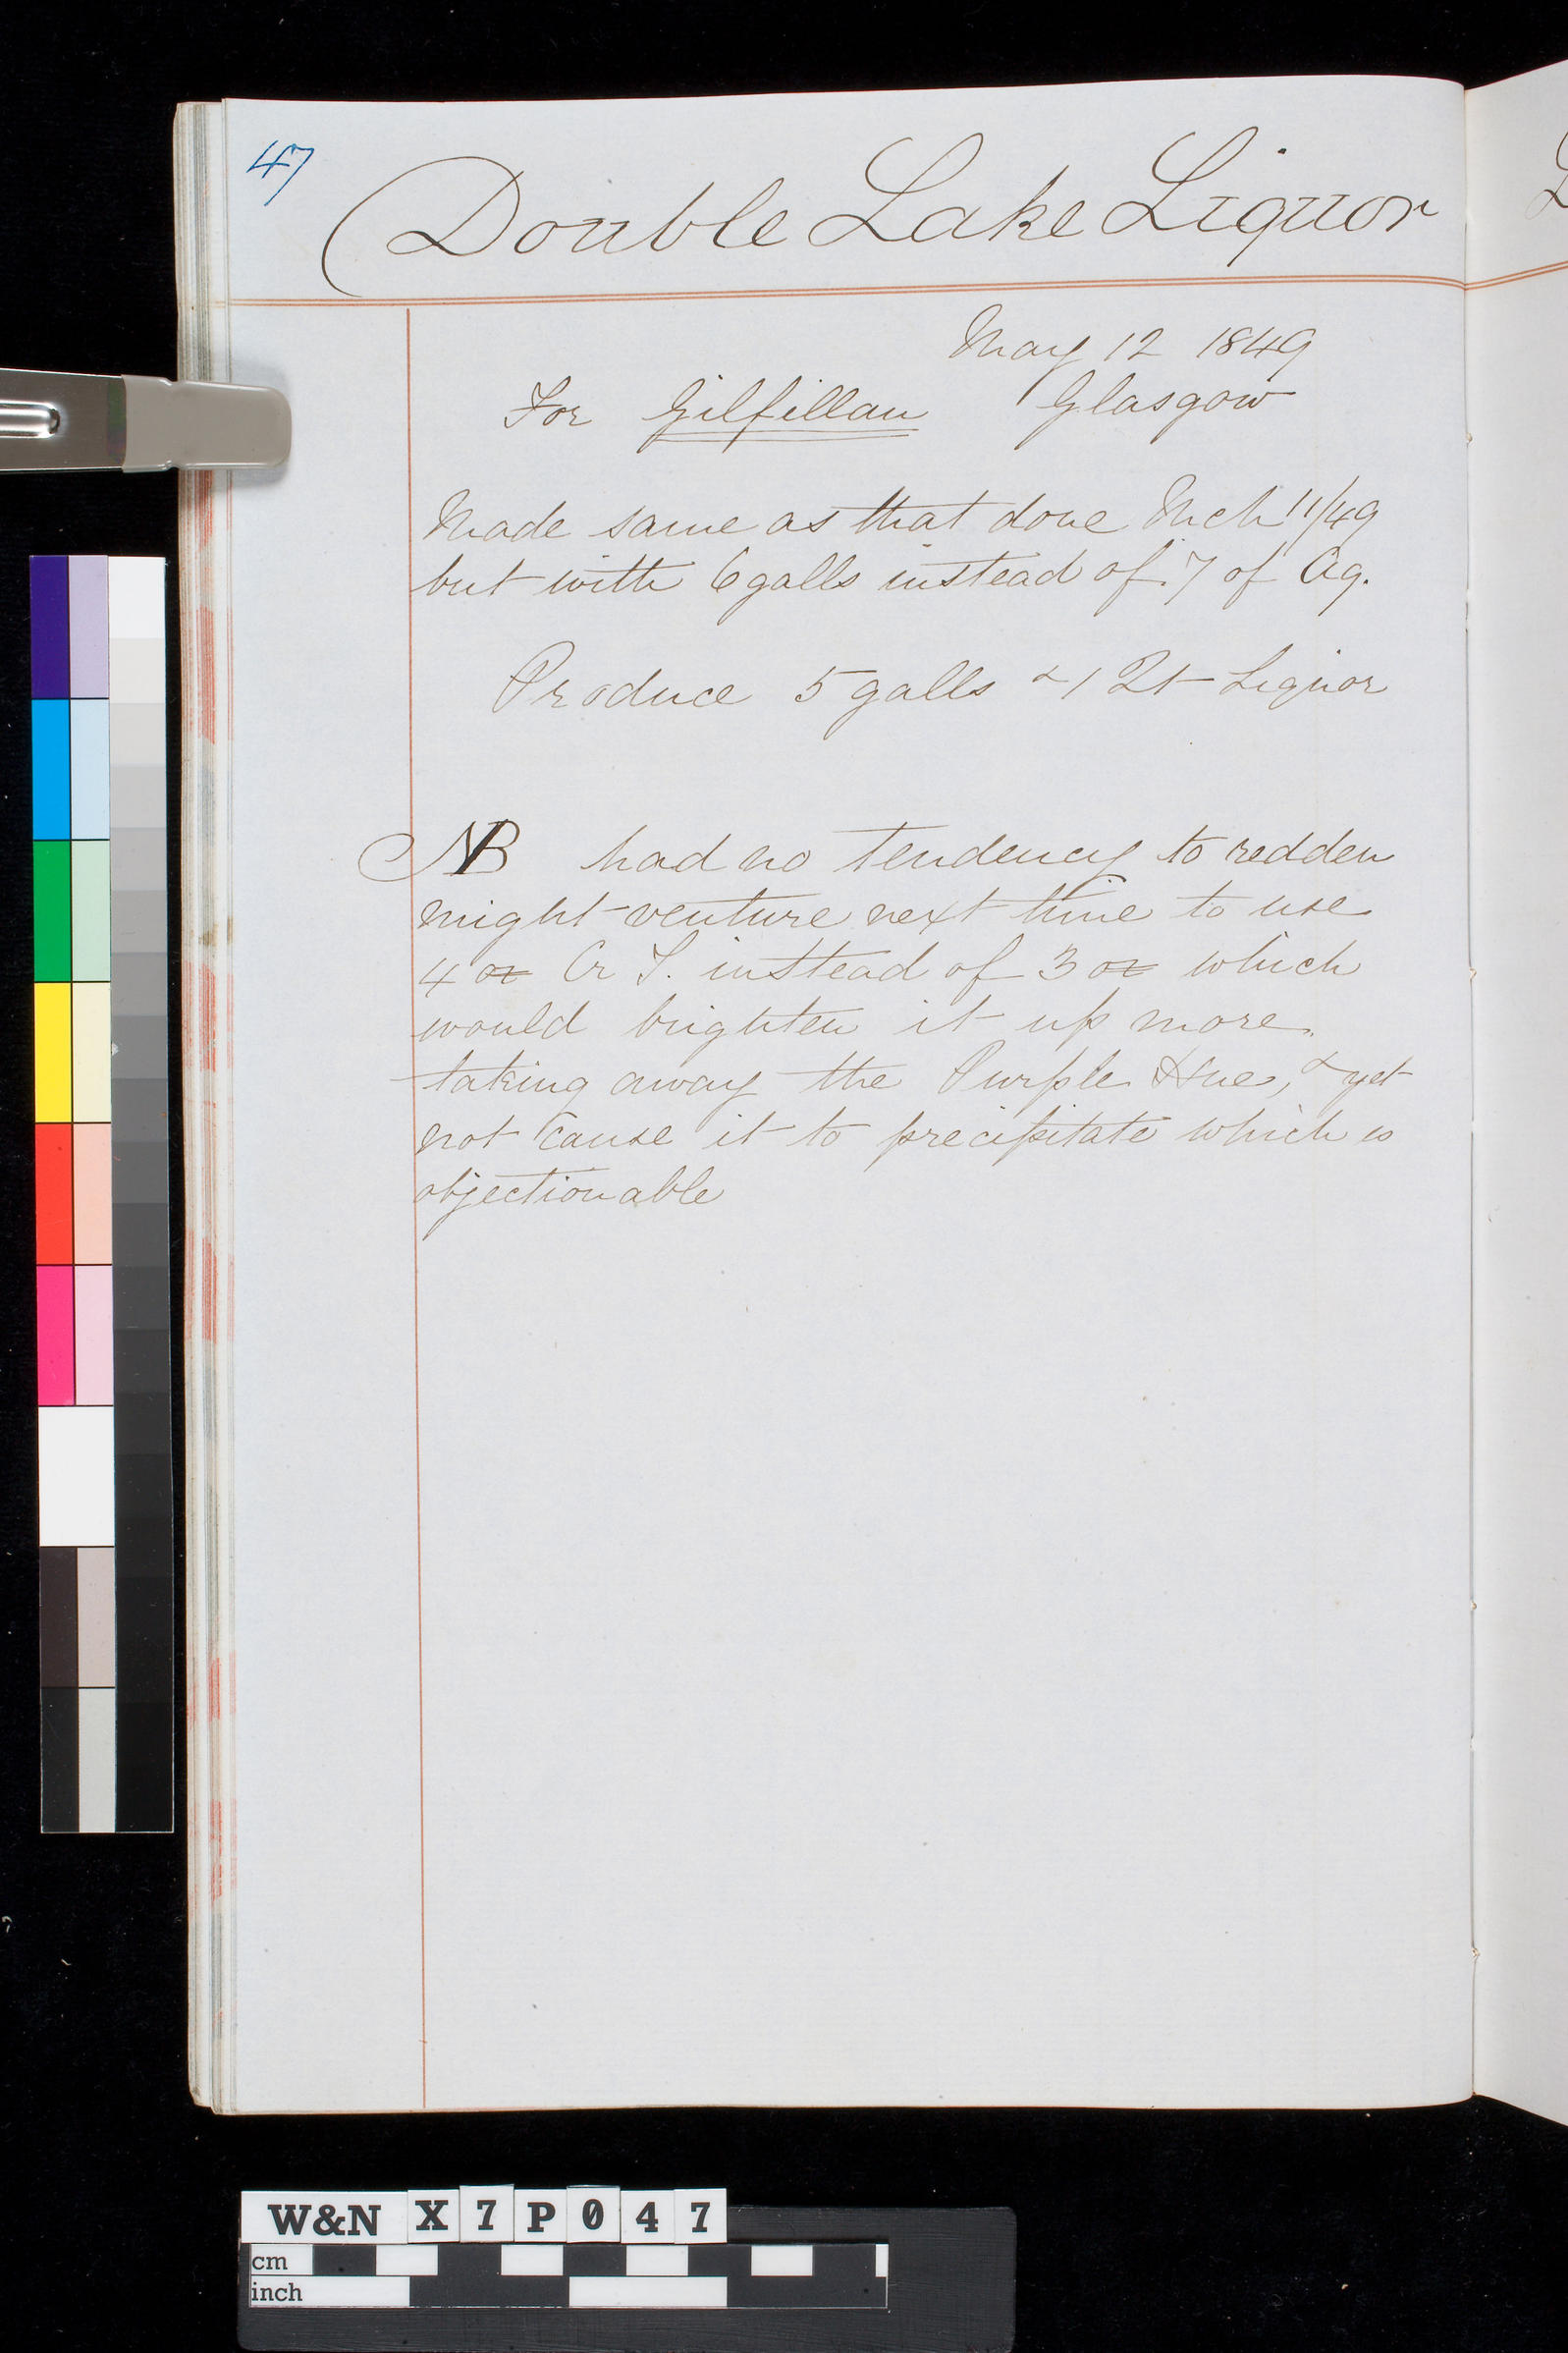 47
Double Lake Liquor
May 12 1849
For Gilfillan Glasgow
Made same as that done Mch 11/49
but with 6 galls instead of 7 of Aq.
Produce 5 galls & 1 Qt Liquor
NB had no tendency to redden
might venture next time to use
4 oz Cr T. instead of 3 oz which
would brighten it up more.
taking away the Purple Hue, & yet
not cause it to precipitate which is
objectionable
W&N X7P047
cm
inch